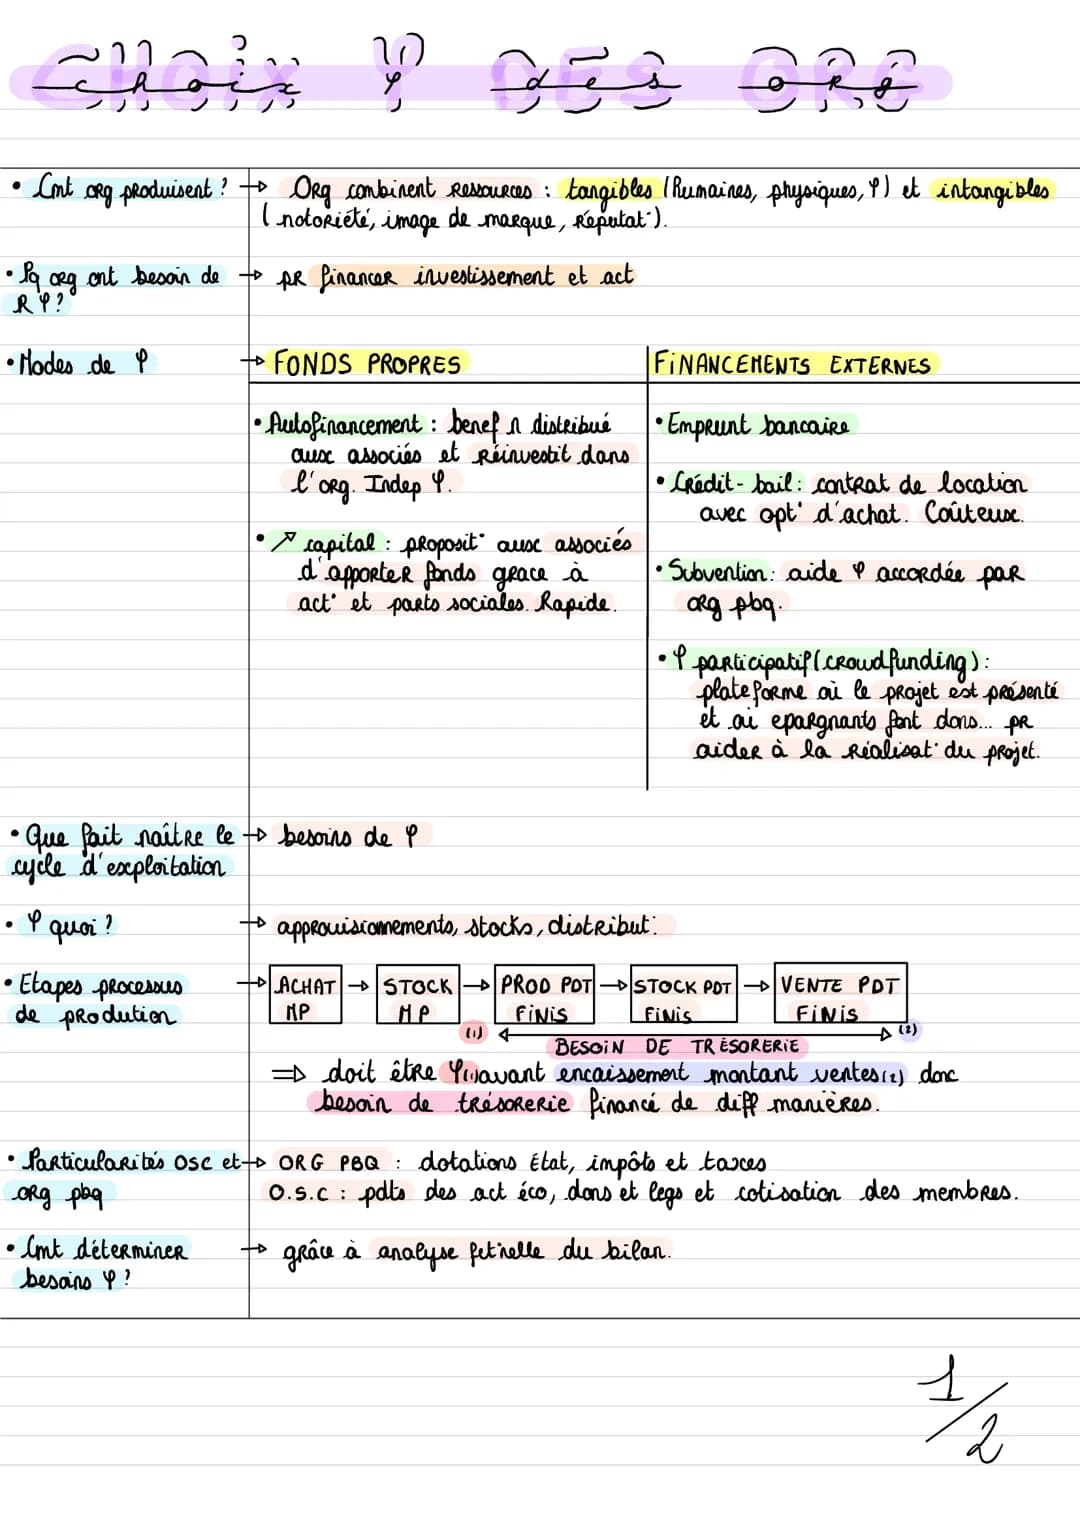 Choix φ DES ORG
• Cmt org produisent ? → Org combinent ressources : tangibles (humaines, physiques, φ) et intangibles
(notoriété, image de marque, réputat°).
• Pq org ont besoin de → pr financer investissement et act
R φ ?
• Modes de φ → FONDS PROPRES
FINANCEMENTS EXTERNES
• Autofinancement : benef n distribué
aux associés et réinvestit dans
l'org. Indep φ.
• ↗ capital : proposit° aux associés
d'apporter fonds grace à
act° et parts sociales. Rapide.
• Emprunt bancaire
• Crédit-bail : contrat de location
avec opt° d'achat. Coûteux.
• Subvention : aide φ accordée par
org pbq.
• φ participatif (crowdfunding) :
plateforme où le projet est présenté
et où epargnants font dons... pr
aider à la réalisat° du projet.
• Que fait naître le → besoins de φ
cycle d'exploitation
• φ quoi ? → approvisionnements, stocks, distribut°.
• Etapes processus
de prodution
→ ACHAT MP → STOCK MP → PROD PDT FINIS → STOCK PDT FINIS → VENTE PDT FINIS
(1) (2)
BESOIN DE TRÉSORERIE
⇒ doit être φ(1) avant encaissement montant ventes (2) donc
besoin de trésorerie financé de diff manières.
• Particularités OSC et → ORG PBQ : dotations État, impôts et taxes
org pbq O.S.C : pdts des act éco, dons et legs et cotisation des membres.
• Cmt déterminer → grâce à analyse fct°nelle du bilan.
besoins φ ?
1/2